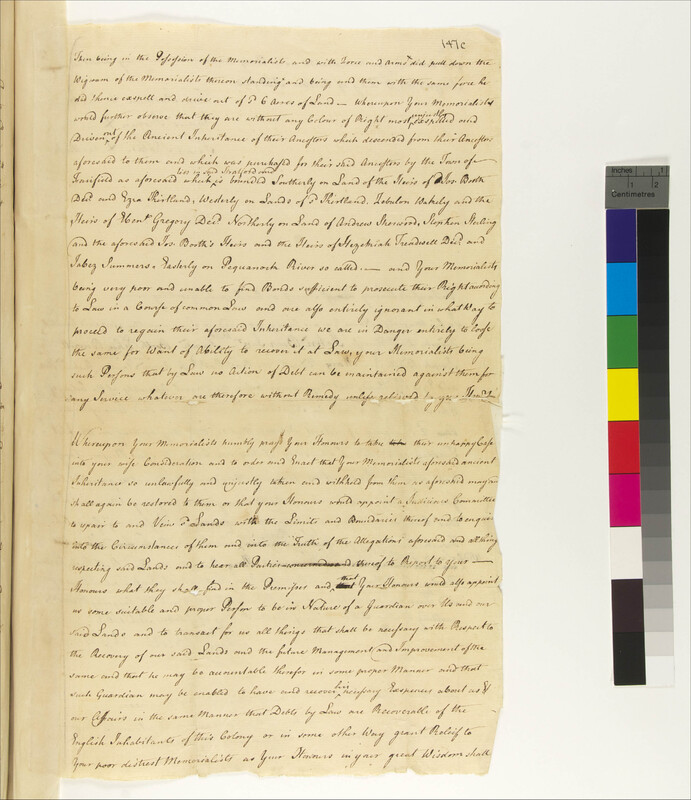 147c
Then being in the Possession of the Memorialists and with Force and Arms did pull down the
Wigwam of the Memorialists thereon standing and being and them with the same force he
did thence expell and drive out of sd 6 Acres of Land — Whereupon Your Memorialists
would further observe that they are without any Colour of Right most unjustly Expelled and
Driven out of the Ancient Inheritance of their Ancestors which descended from their Ancestors
aforesaid to them and which was purchased for their said Ancestors by the Town of
lies in said Stratford and
Fairfield as aforesaid which is bounded Southerly on Land of the Heirs of Jos. Booth
Decd and Ezra Kirtland, Westerly on Lands of sd Kirtland, Zebulon Wakely and the
Heirs of Honll Gregory Decd Northerly on Land of Andrew Sherwood, Stephen Sterling
and the aforesaid Jos. Booth's Heirs and the Heirs of Hezekiah Treadwell Decd and
Jabez Summers. Easterly on Pequanock River so called. — and Your Memorialists
being very poor and unable to find Bonds sufficient to prosecute their Right according
to Law in a Course of common Law and are also entirely ignorant in what Way to
proceed to regain their aforesaid Inheritance we are in Danger entirely to loose
the same for Want of Ability to recover it at Law, your Memorialists being
such Persons that by Law no Action of Debt can be maintained against them for
any Service whatever are therefore without Remedy unless relieved by your
Whereupon Your Memorialists humbly pray Your Honours to take their unhappy Case
into your wise Consideration and to order and Enact that Your Memorialists aforesaid ancient
Inheritance so unlawfully and unjustly taken and withheld from them as aforesaid may
shall again be restored to them or that your Honours would appoint a Judicious Committee
to repair to and View sd Lands with the Limits and Boundaries thereof and to enquire
into the Circumstances of them and into the Truth of the Allegations aforesaid and all things
respecting said Lands and to hear all Parties thereof to Report to your —
Honours what they shall find in the Premisses and that Your Honours would also appoint
us some suitable and proper Person to be in Nature of a Guardian over Us and our
said Lands and to transact for us all things that shall be necessary with Respect to
the Recovery of our said Lands and the future Management and Improvement of the
same and that he may be accountable therefor in some proper Manner and that
such Guardian may be enabled to have and recover his necessary Expences about us &
our Affairs in the same Manner that Debts by Law are Recoverable of the
English Inhabitants of this Colony or in some other Way grant Releif to
Your poor distrest Memorialists as Your Honours in your great Wisdom shall
Inches
1
1
2
Centimetres